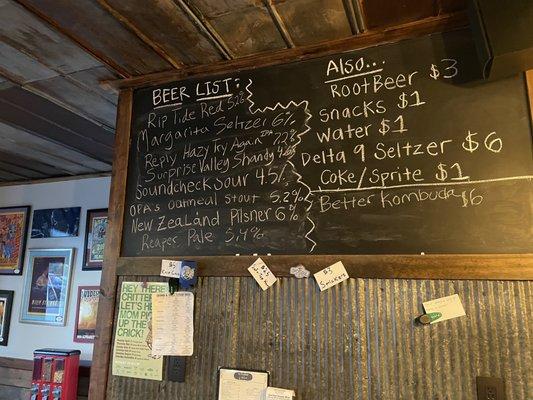 BEER LIST:
Rip Tide Red 5.2%
Margarita Seltzer 6%
Reply Hazy Try Again IPA 7.2%
Surprise Valley Shandy 4.6%
Soundcheck Sour 4.5%
OPA's Oatmeal Stout 5.2%
New Zealand Pilsner 6%
Reaper Pale 5.4%
Also...
RootBeer $3
snacks $1
water $1
Delta 9 Seltzer $6
Coke/Sprite $1
Better Kombuda $6
HEY THERE
CRITTER!
LET'S HE
MOM PIC
UP THE
CRICK!